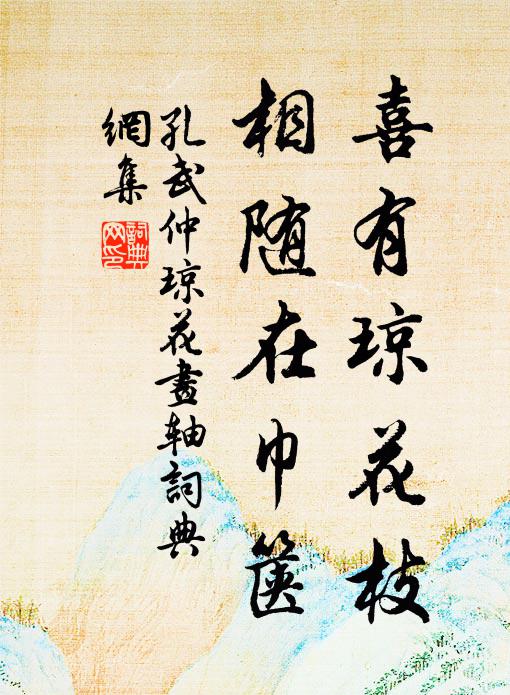 喜有琼花枝
相随在巾箧
孔武仲琼花畫轴詞典
網集
詞典
网印